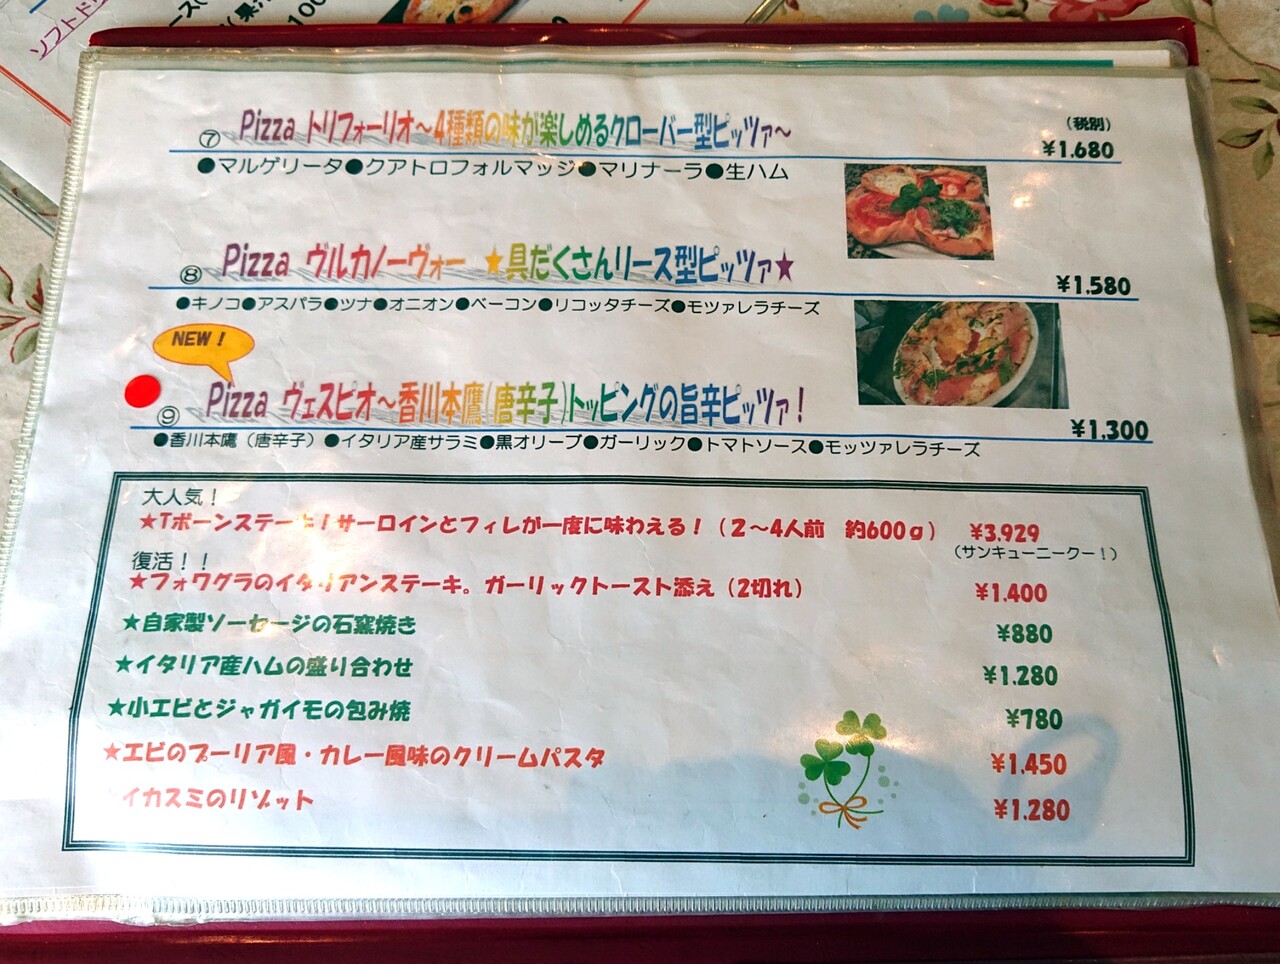 ソフトドリ
100
(税別)
⑦ Pizza トリフォーリオ～4種類の味が楽しめるクローバー型ピッツァ～ ¥1.680
●マルゲリータ●クアトロフォルマッジ●マリナーラ●生ハム
⑧ Pizza ヴルカノーヴォー ★具だくさんリース型ピッツァ★ ¥1.580
●キノコ●アスパラ●ツナ●オニオン●ベーコン●リコッタチーズ●モツァレラチーズ
NEW！
⑨ Pizza ヴェスピオ～香川本鷹(唐辛子)トッピングの旨辛ピッツァ！ ¥1,300
●香川本鷹（唐辛子）●イタリア産サラミ●黒オリーブ●ガーリック●トマトソース●モッツァレラチーズ
大人気！
★Tボーンステーキ！サーロインとフィレが一度に味わえる！（２～４人前　約600ｇ） ¥3.929
（サンキューニークー！）
復活！！
★フォワグラのイタリアンステーキ。ガーリックトースト添え（2切れ） ¥1.400
★自家製ソーセージの石窯焼き ¥880
★イタリア産ハムの盛り合わせ ¥1.280
★小エビとジャガイモの包み焼 ¥780
★エビのプーリア風・カレー風味のクリームパスタ ¥1.450
イカスミのリゾット ¥1.280